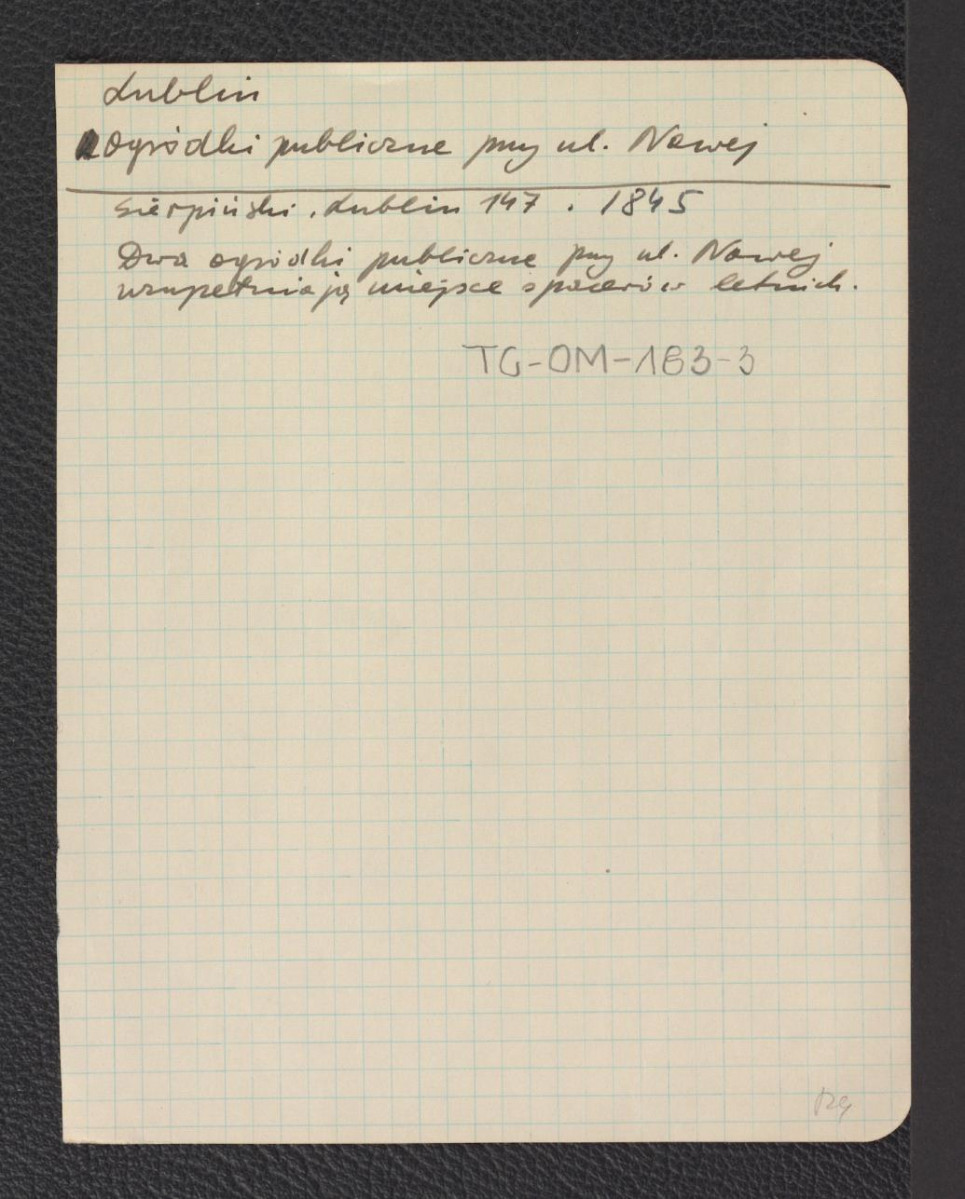 Lublin
Ogródki publiczne przy ul. Nowej
Sierpiński, Lublin 147. 1845
Dwa ogródki publiczne przy ul. Nowej
uzupełniają miejsce spacerów letnich.
TG-OM-183-3